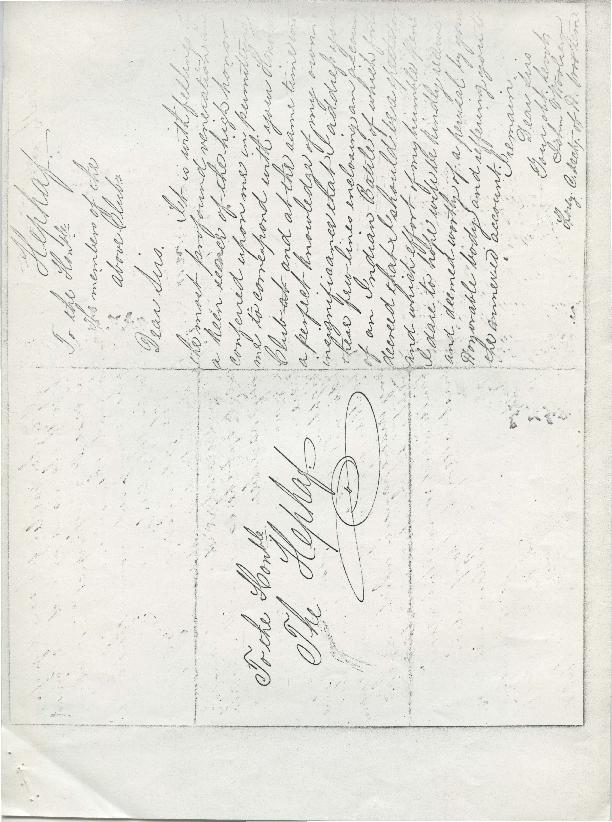 Hephaf
To the Honble
the members of the
above Clubs
Dear Sirs.
It is with feeling
the most profound veneration
a keen sense of the high honor
conferred upon me in permitting
me to correspond with your Hon
Club and at the same time
a perfect knowledge of my own
insignificance that I address you
these few lines enclosing an
of an Indian Battle of which
desired that I should
and which effort of my humble pen
I dare to hope will be kindly
and deemed worthy of a perusal by your
Honorable body and
the annexed account.
I remain
Dear Sirs
To the Honble
The Hephaf